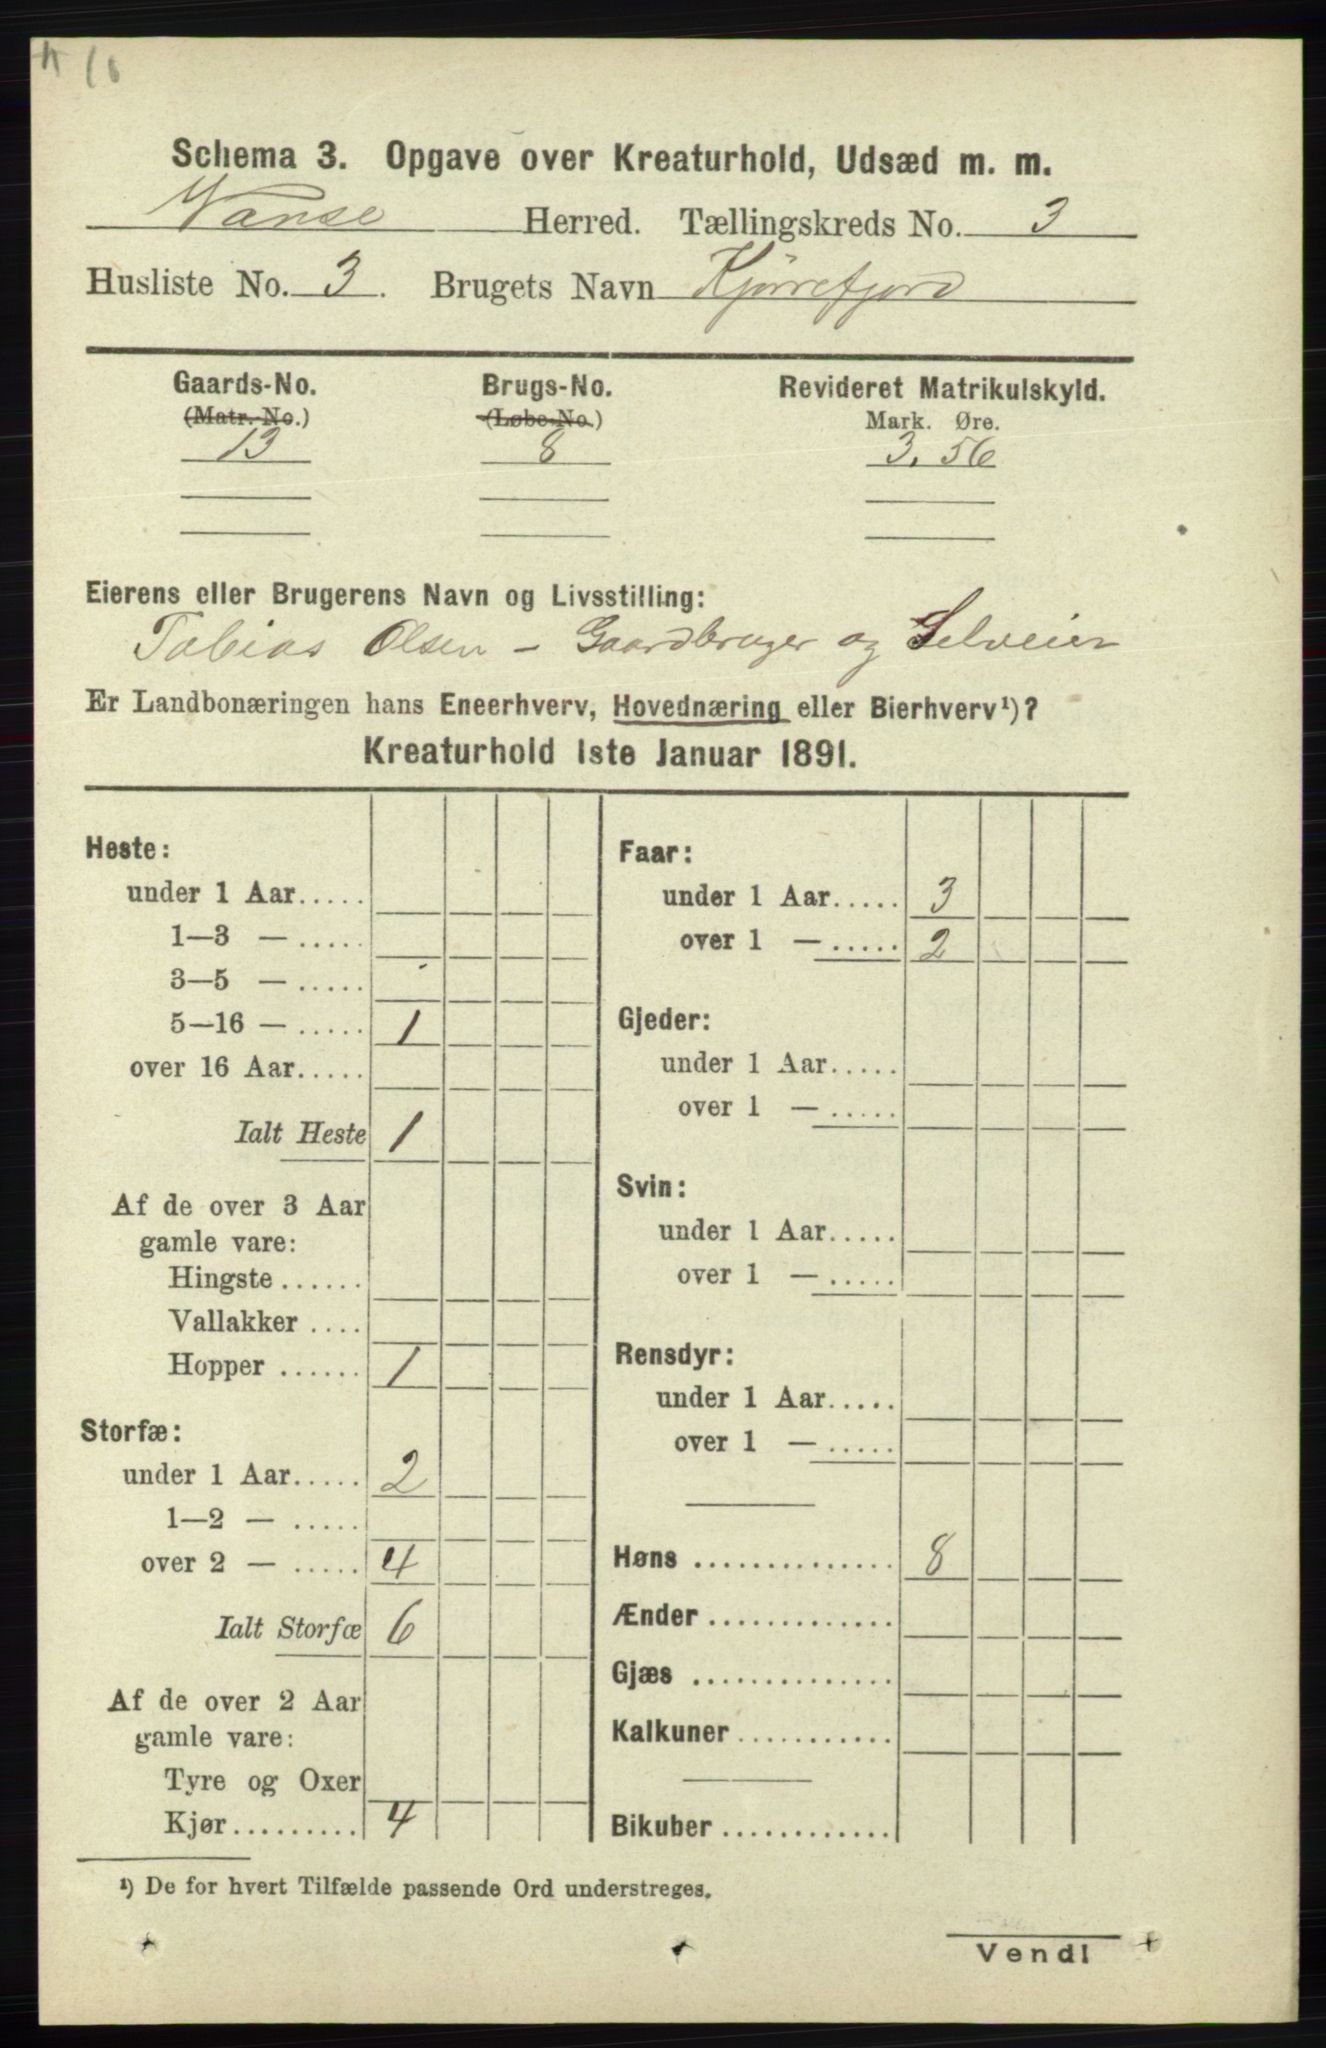 Schema 3. Opgave over Kreaturhold, Udsæd m. m.
Vanse Herred. Tællingskreds No. 3
Husliste No. 3. Brugets Navn Kjørrefjord
Gaards-No. Brugs-No. Revideret Matrikulskyld.
(Matr.-No.) (Løbe-No.) Mark. Øre.
13 8 3. 56
Eierens eller Brugerens Navn og Livsstilling:
Tobias Olsen – Gaardbruger og Selveier
Er Landbonæringen hans Eneerhverv, Hovednæring eller Bierhverv¹)?
Kreaturhold 1ste Januar 1891.
Heste:
under 1 Aar.....
1—3 — .....
3—5 — .....
5—16 — ..... 1
over 16 Aar.....
Ialt Heste 1
Af de over 3 Aar
gamle vare:
Hingste ......
Vallakker ....
Hopper ...... 1
Storfæ:
under 1 Aar..... 2
1—2 — .....
over 2 — ..... 4
Ialt Storfæ 6
Af de over 2 Aar
gamle vare:
Tyre og Oxer
Kjør......... 4
Faar:
under 1 Aar..... 3
over 1 — ..... 2
Gjeder:
under 1 Aar.....
over 1 — .....
Svin:
under 1 Aar.....
over 1 — .....
Rensdyr:
under 1 Aar.....
over 1 — .....
Høns .............. 8
Ænder .............
Gjæs ..............
Kalkuner ...........
Bikuber ............
¹) De for hvert Tilfælde passende Ord understreges.
Vend!